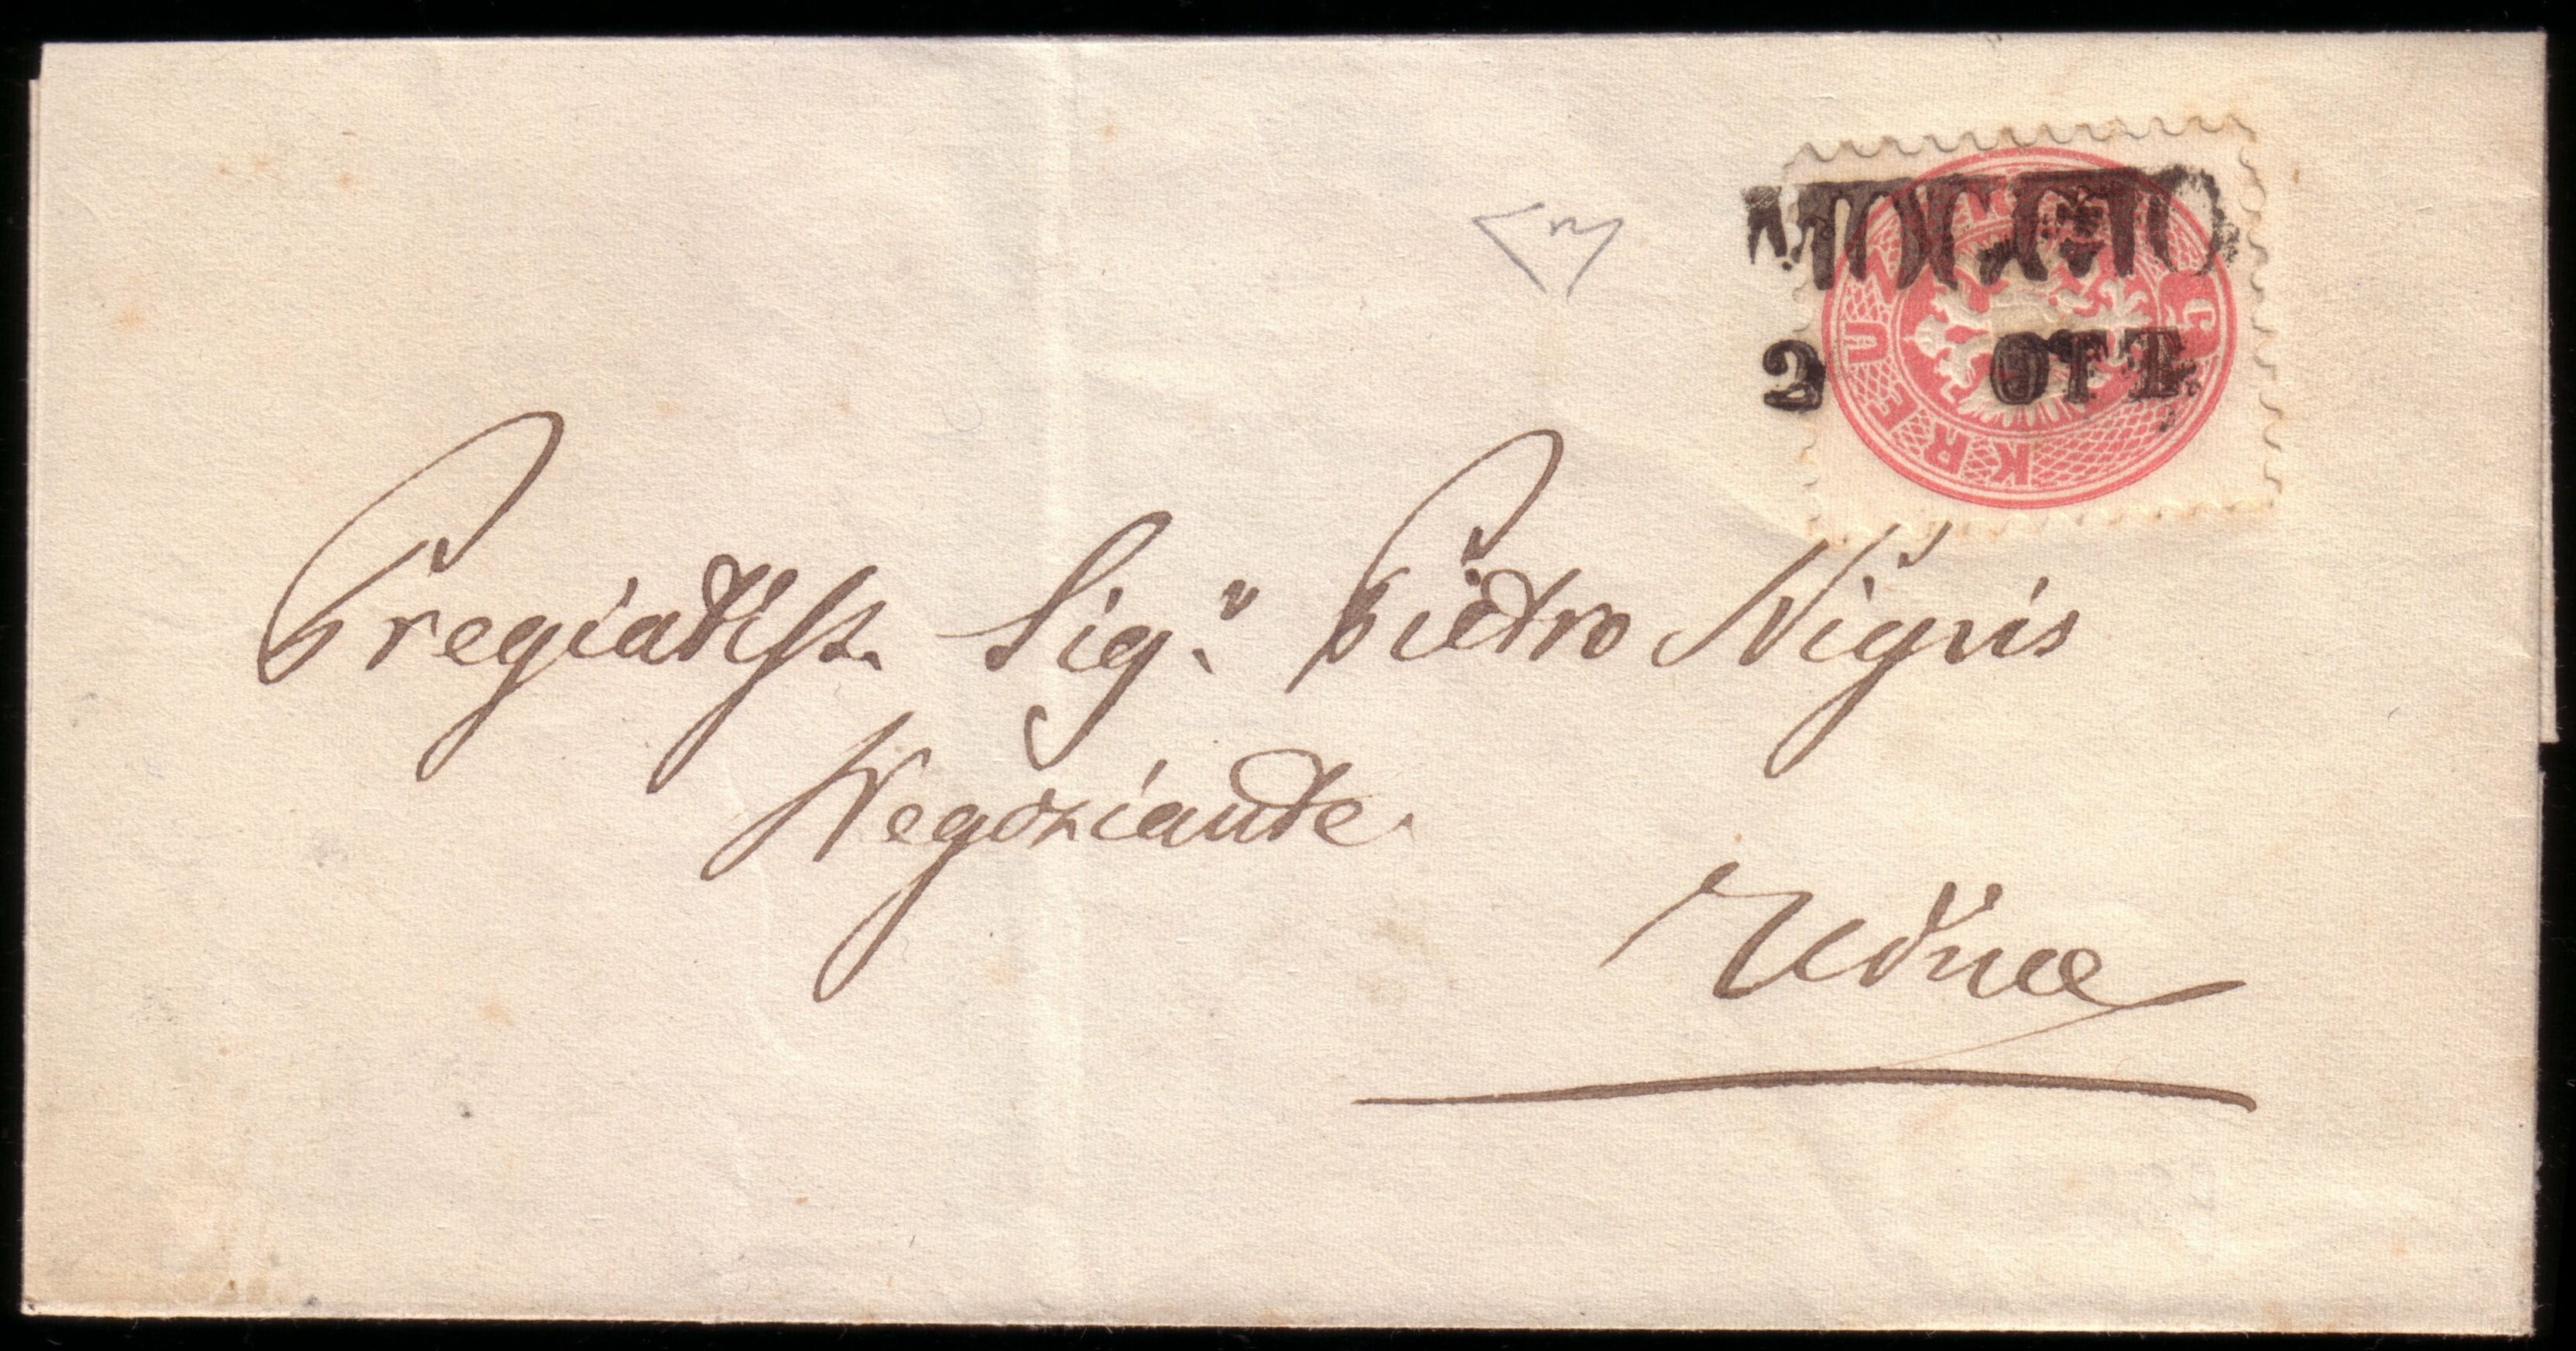 MOGGIO
2 OTT.
5 KREUZER 5
Pregiatiss. Sig.r Pietro Nigris
Negoziante
Udine